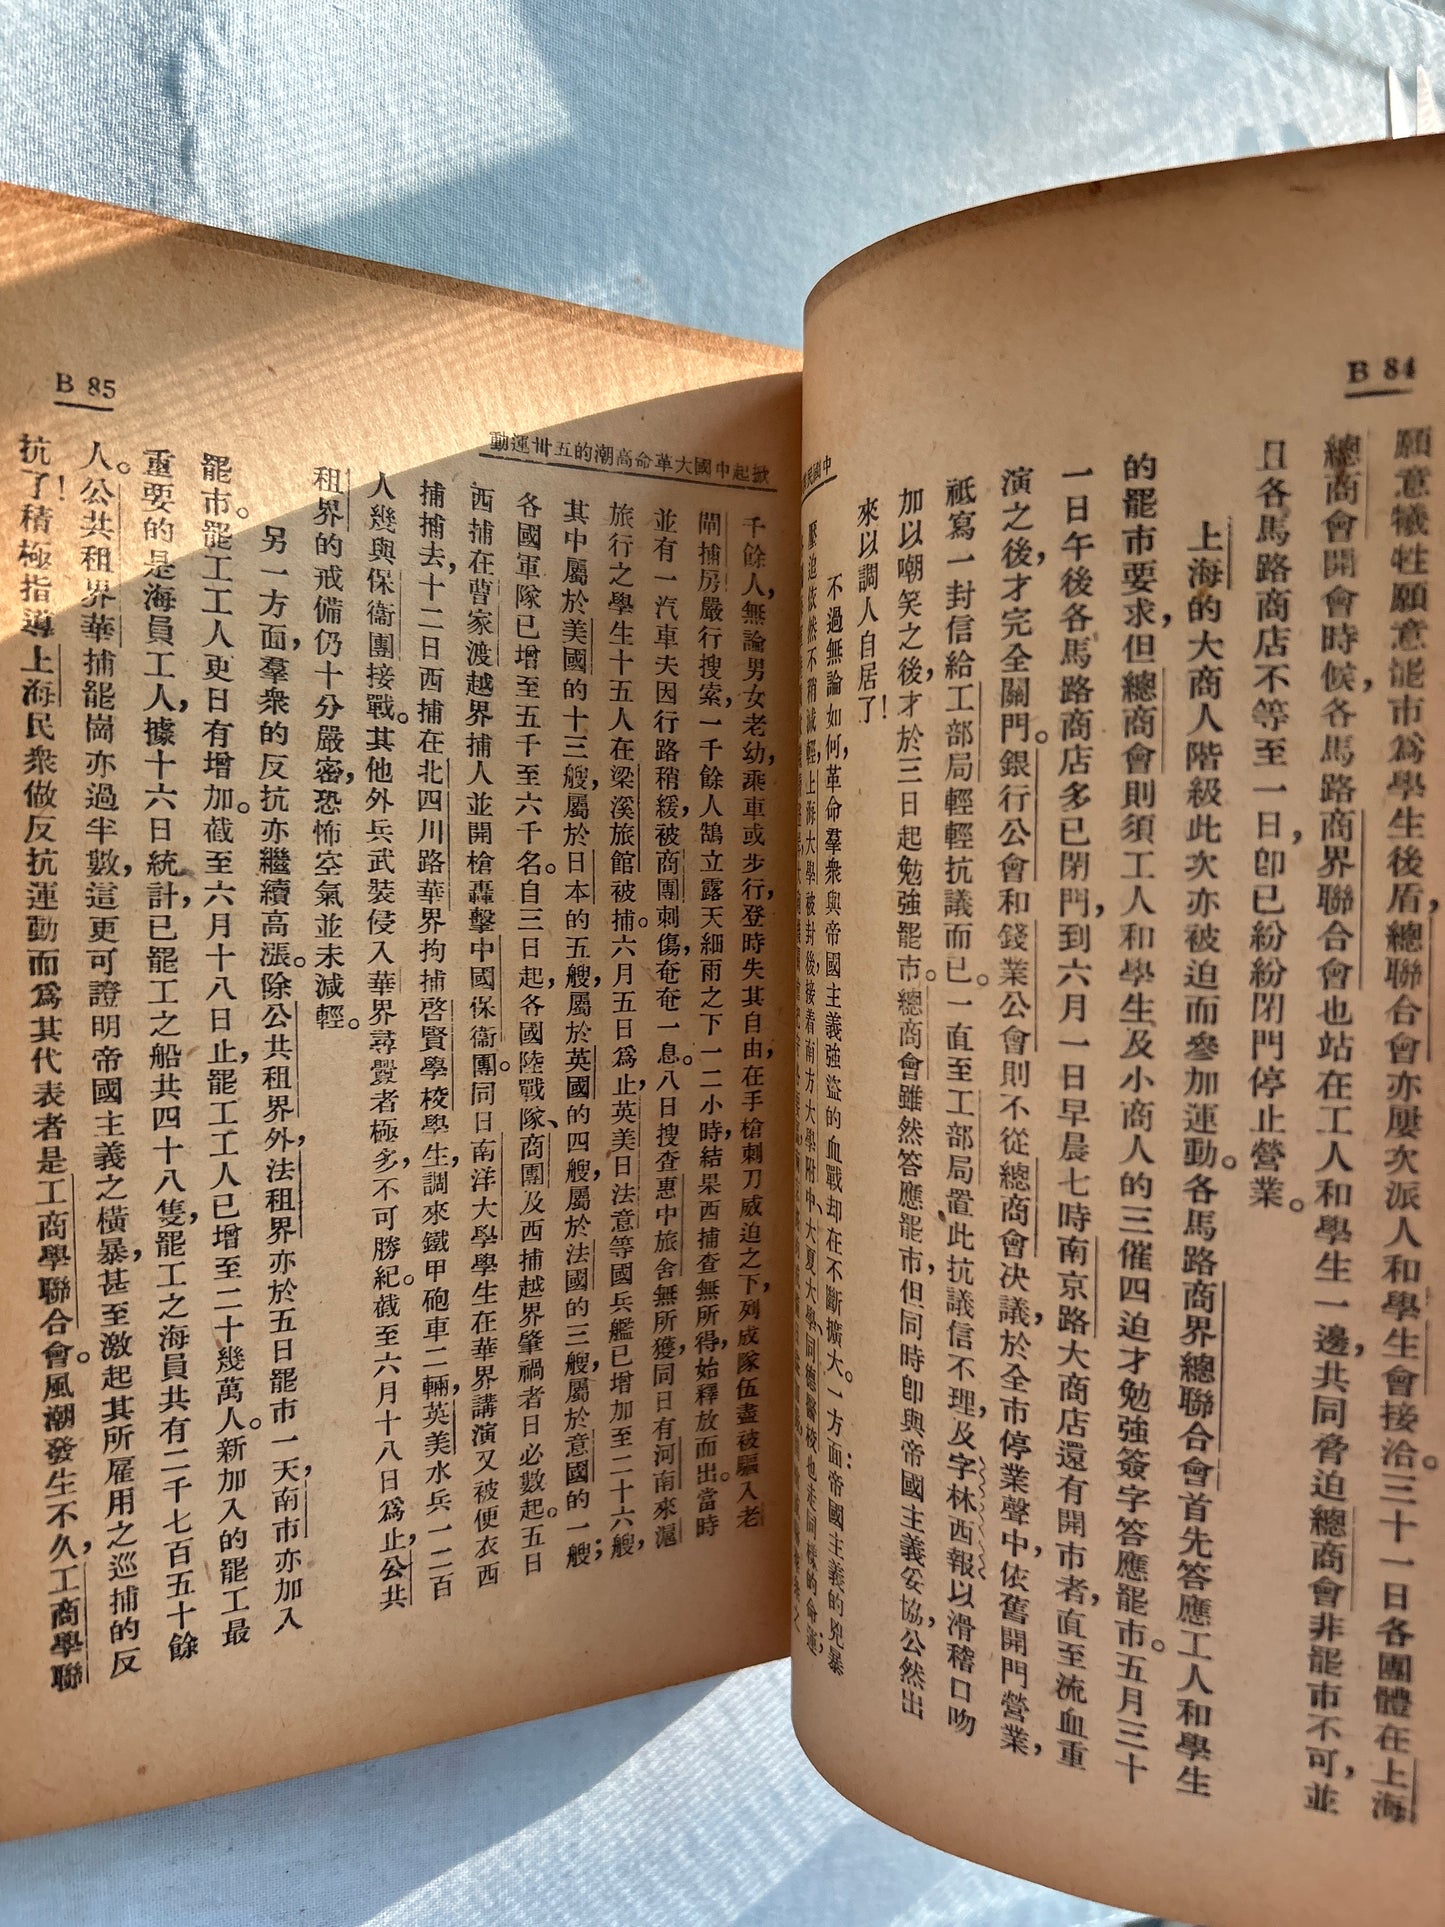 B 84
願意犧牲願意罷市爲學生後盾，總聯合會亦屢次派人和學生會接洽。三十一日各團體在上海
總商會開會時候，各馬路商界聯合會也站在工人和學生一邊，共同脅迫總商會非罷市不可，並
且各馬路商店不等至一日，卽已紛紛閉門停止營業。
上海的大商人階級此次亦被迫而參加運動。各馬路商界總聯合會首先答應工人和學生
的罷市要求，但總商會則須工人和學生及小商人的三催四迫才勉強簽字答應罷市。五月三十
一日午後各馬路商店多已閉門，到六月一日早晨七時南京路大商店還有開市者，直至流血重
演之後，才完全關門。銀行公會和錢業公會則不從總商會決議，於全市停業聲中，依舊開門營業，
祇寫一封信給工部局輕輕抗議而已。一直至工部局置此抗議信不理，及字林西報以滑稽口吻
加以嘲笑之後，才於三日起勉強罷市。總商會雖然答應罷市，但同時卽與帝國主義妥協，公然出
來以調人自居了！
不過無論如何，革命羣衆與帝國主義強盜的血戰却在不斷擴大。一方面帝國主義的兇暴
壓迫依然不稍減輕，上海大學被封後，接着南方大學附中、大夏大學、同德醫校也走同樣的命運；
中國民
B 85
掀起中國大革命高潮的五卅運動
千餘人，無論男女老幼，乘車或步行，登時失其自由，在手槍刺刀威迫之下，列成隊伍盡被驅入老
閘捕房嚴行搜索，一千餘人鵠立露天細雨之下一二小時，結果西捕查無所得，始釋放而出。當時
並有一汽車夫因行路稍緩，被商團刺傷，奄奄一息。八日搜查惠中旅舍無所獲，同日有河南來滬
旅行之學生十五人在梁溪旅館被捕。六月五日爲止，英美日法意等國兵艦已增加至二十六艘，
其中屬於美國的十三艘，屬於日本的五艘，屬於英國的四艘，屬於法國的三艘，屬於意國的一艘；
各國軍隊已增至五千至六千名。自三日起，各國陸戰隊、商團及西捕越界肇禍者日必數起。五日
西捕在曹家渡越界捕人並開槍轟擊中國保衞團。同日南洋大學學生在華界講演又被便衣西
捕捕去，十二日西捕在北四川路華界拘捕啓賢學校學生，調來鐵甲砲車二輛，英美水兵一二百
人幾與保衞團接戰。其他外兵武裝侵入華界尋釁者極多，不可勝紀。截至六月十八日爲止，公共
租界的戒備仍十分嚴密，恐怖空氣並未減輕。
另一方面，羣衆的反抗亦繼續高漲。除公共租界外，法租界亦於五日罷市一天，南市亦加入
罷市。罷工工人更日有增加。截至六月十八日止，罷工工人已增至二十幾萬人。新加入的罷工最
重要的是海員工人，據十六日統計，已罷工之船共四十八隻，罷工之海員共有二千七百五十餘
人。公共租界華捕罷崗亦過半數，這更可證明帝國主義之橫暴，甚至激起其所雇用之巡捕的反
抗了！積極指導上海民衆做反抗運動而爲其代表者是工商學聯合會。風潮發生不久，工商學聯